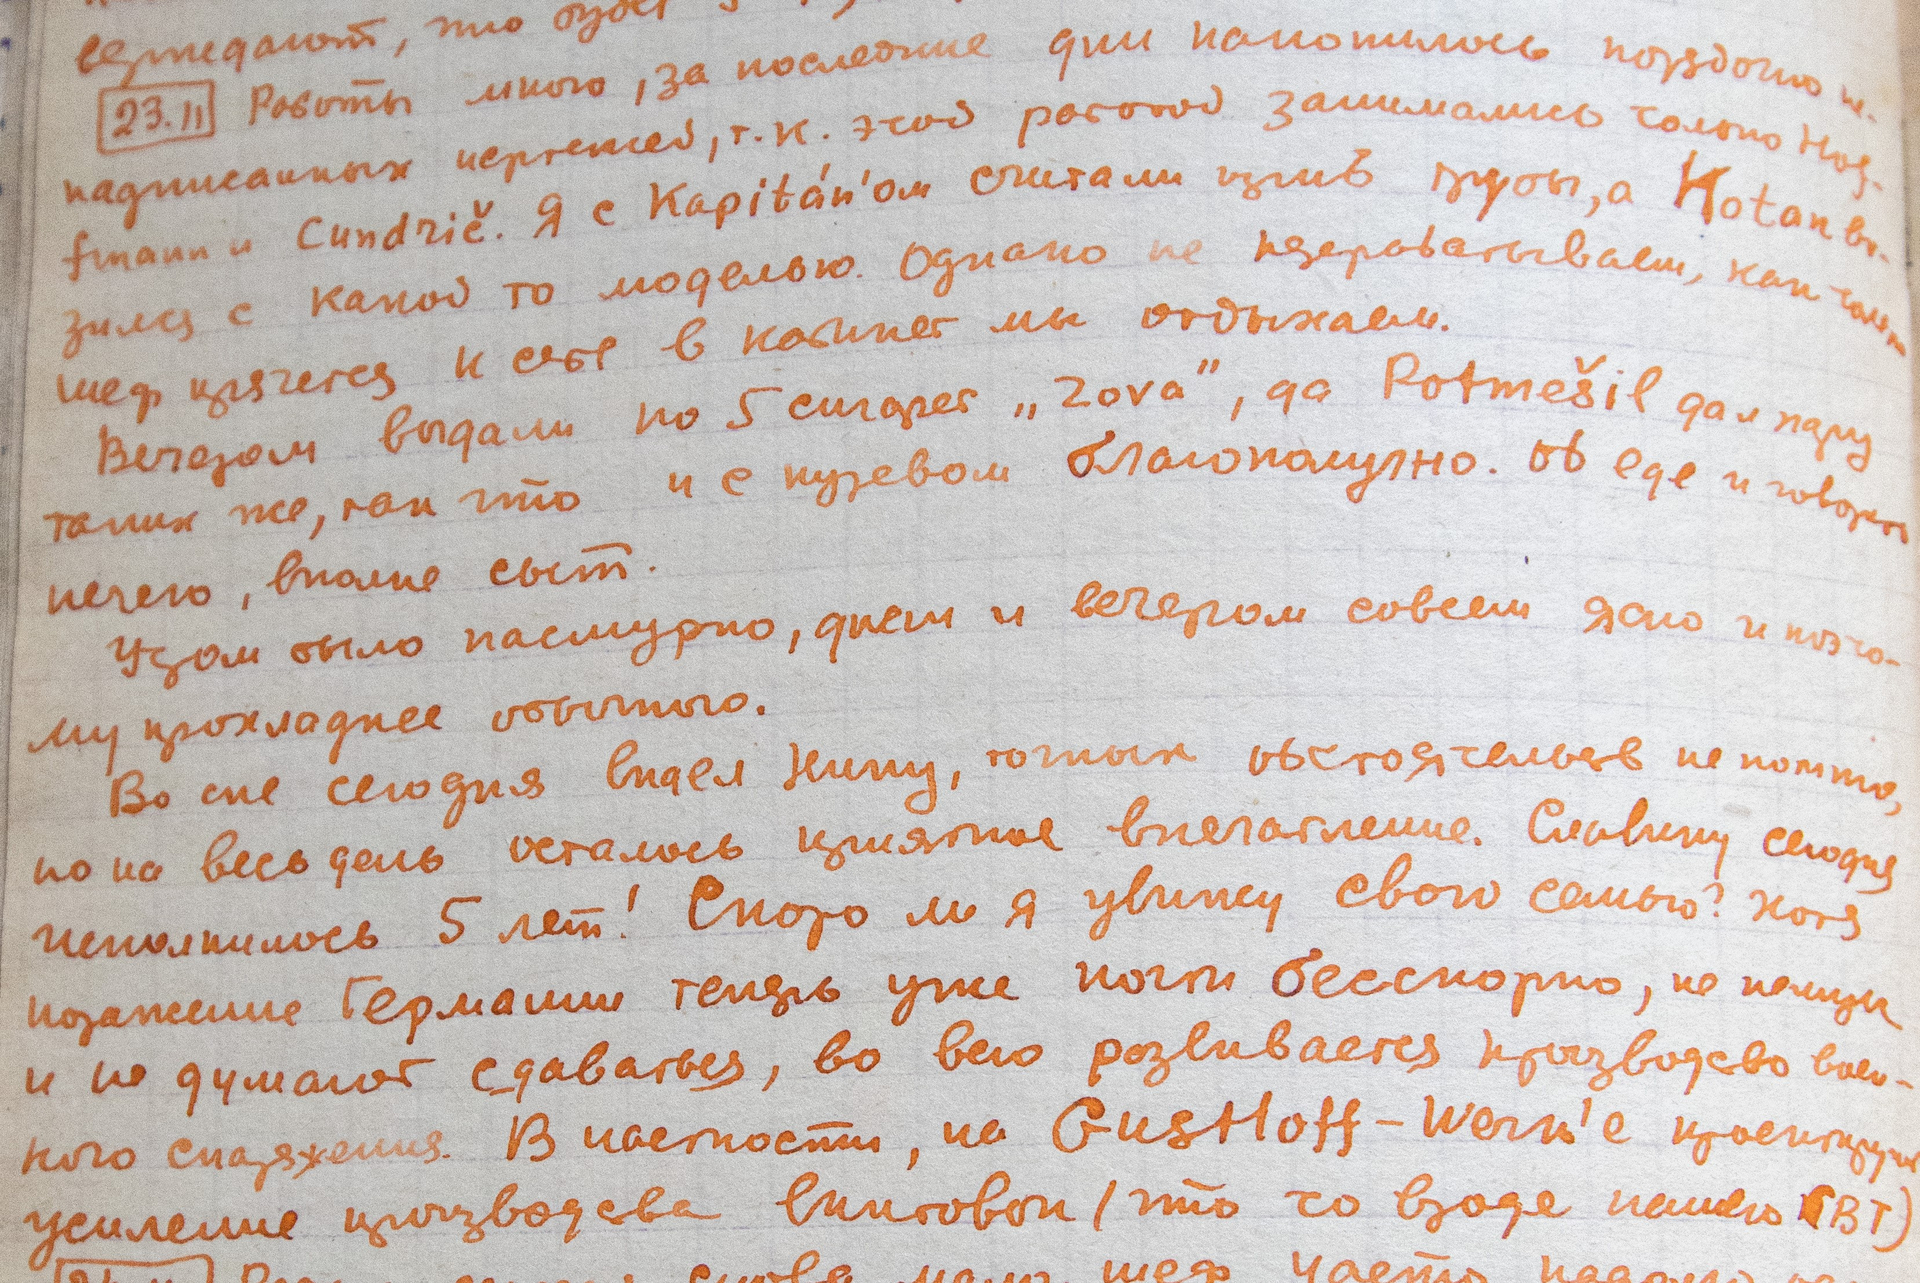 верждают, что будет
23.II Работы много, за последние дни накопилось порядочно не-
надписанных чертежей, т.к. этой работой занимались только Hof-
fmann и Cundrič. Я с Kapitán'ом считали изгиб трубы, а Kotan во-
зился с какой то моделью. Однако не перерабатываем, как только
шеф прячется к себе в кабинет мы отдыхаем.
Вечером выдали по 5 сигарет „Zova", да Potměšil дал пару
таких же, так что и с куревом благополучно. Об еде и говорить
нечего, вполне сыт.
Утром было пасмурно, днем и вечером совсем ясно и поэто-
му прохладнее обычного.
Во сне сегодня видел Нину, точных обстоятельств не помню,
но на весь день осталось приятное впечатление. Славику сегодня
исполнилось 5 лет! Скоро ли я увижу свою семью? Хотя
поражение Германии теперь уже почти бесспорно, но немцы
и не думают сдаваться, во всю развивается производсво воен-
ного снаряжения. В частности, на Gustloff-Werk'е проектируют
усиление производсва винтовок (что то вроде нашей СВТ)
снова мало, шеф часто